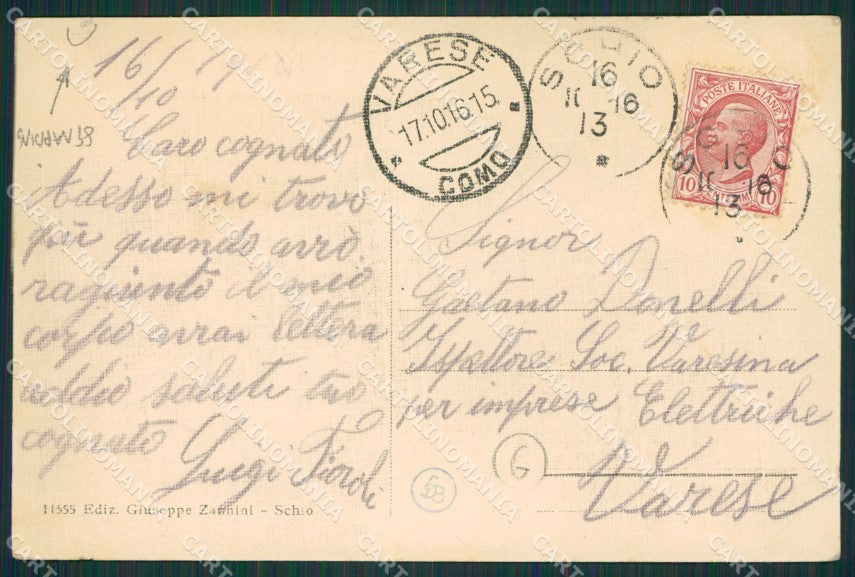 16/10
Caro cognato
Adesso mi trovo
per quando avrò
ragiunto il mio
corpo avrai lettera
addio saluti tuo
cognato
Luigi
11555 Ediz. Giuseppe Zannini - Schio
VARESE
17.10.16.15
COMO
SCHIO
16
16
13
POSTE ITALIANE
10 10
SCHIO
16
16
13
Signor
Gaetano Donelli
Ispettore Soc. Varesina
per imprese Elettriche
Varese
G
CARTOLINOMANIA